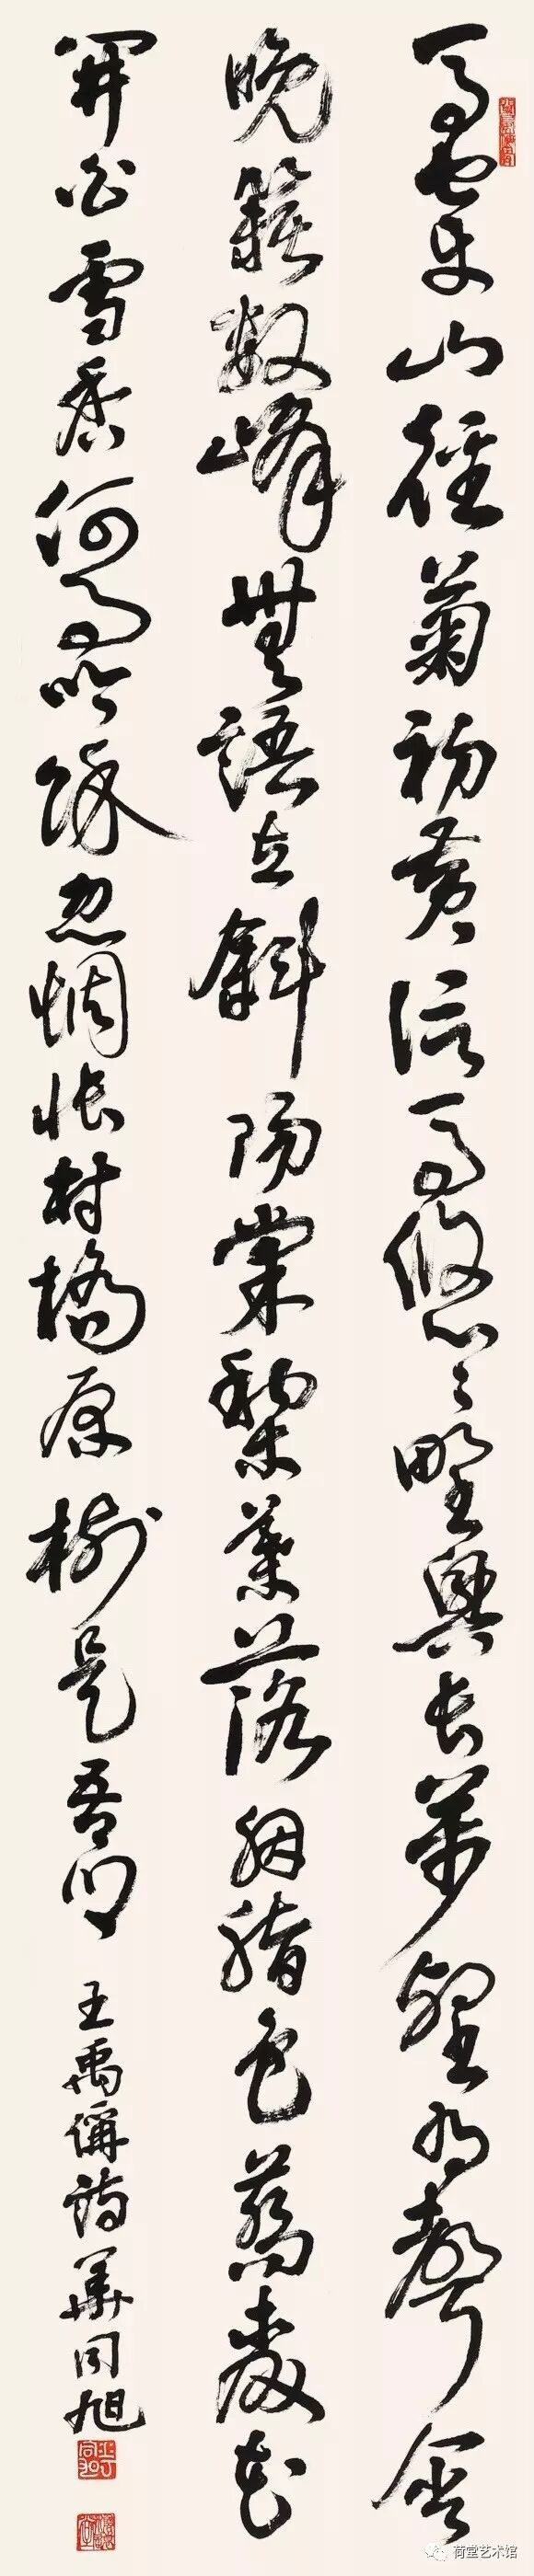 馬穿山徑菊初黃信馬悠々野興長萬壑有聲含
晚籟數峰無語立斜陽棠梨葉落胭脂色蕎麥花
開白雪香何事吟餘忽惆悵村橋原樹是吾鄉
王禹偁詩華同旭
荷堂艺术馆